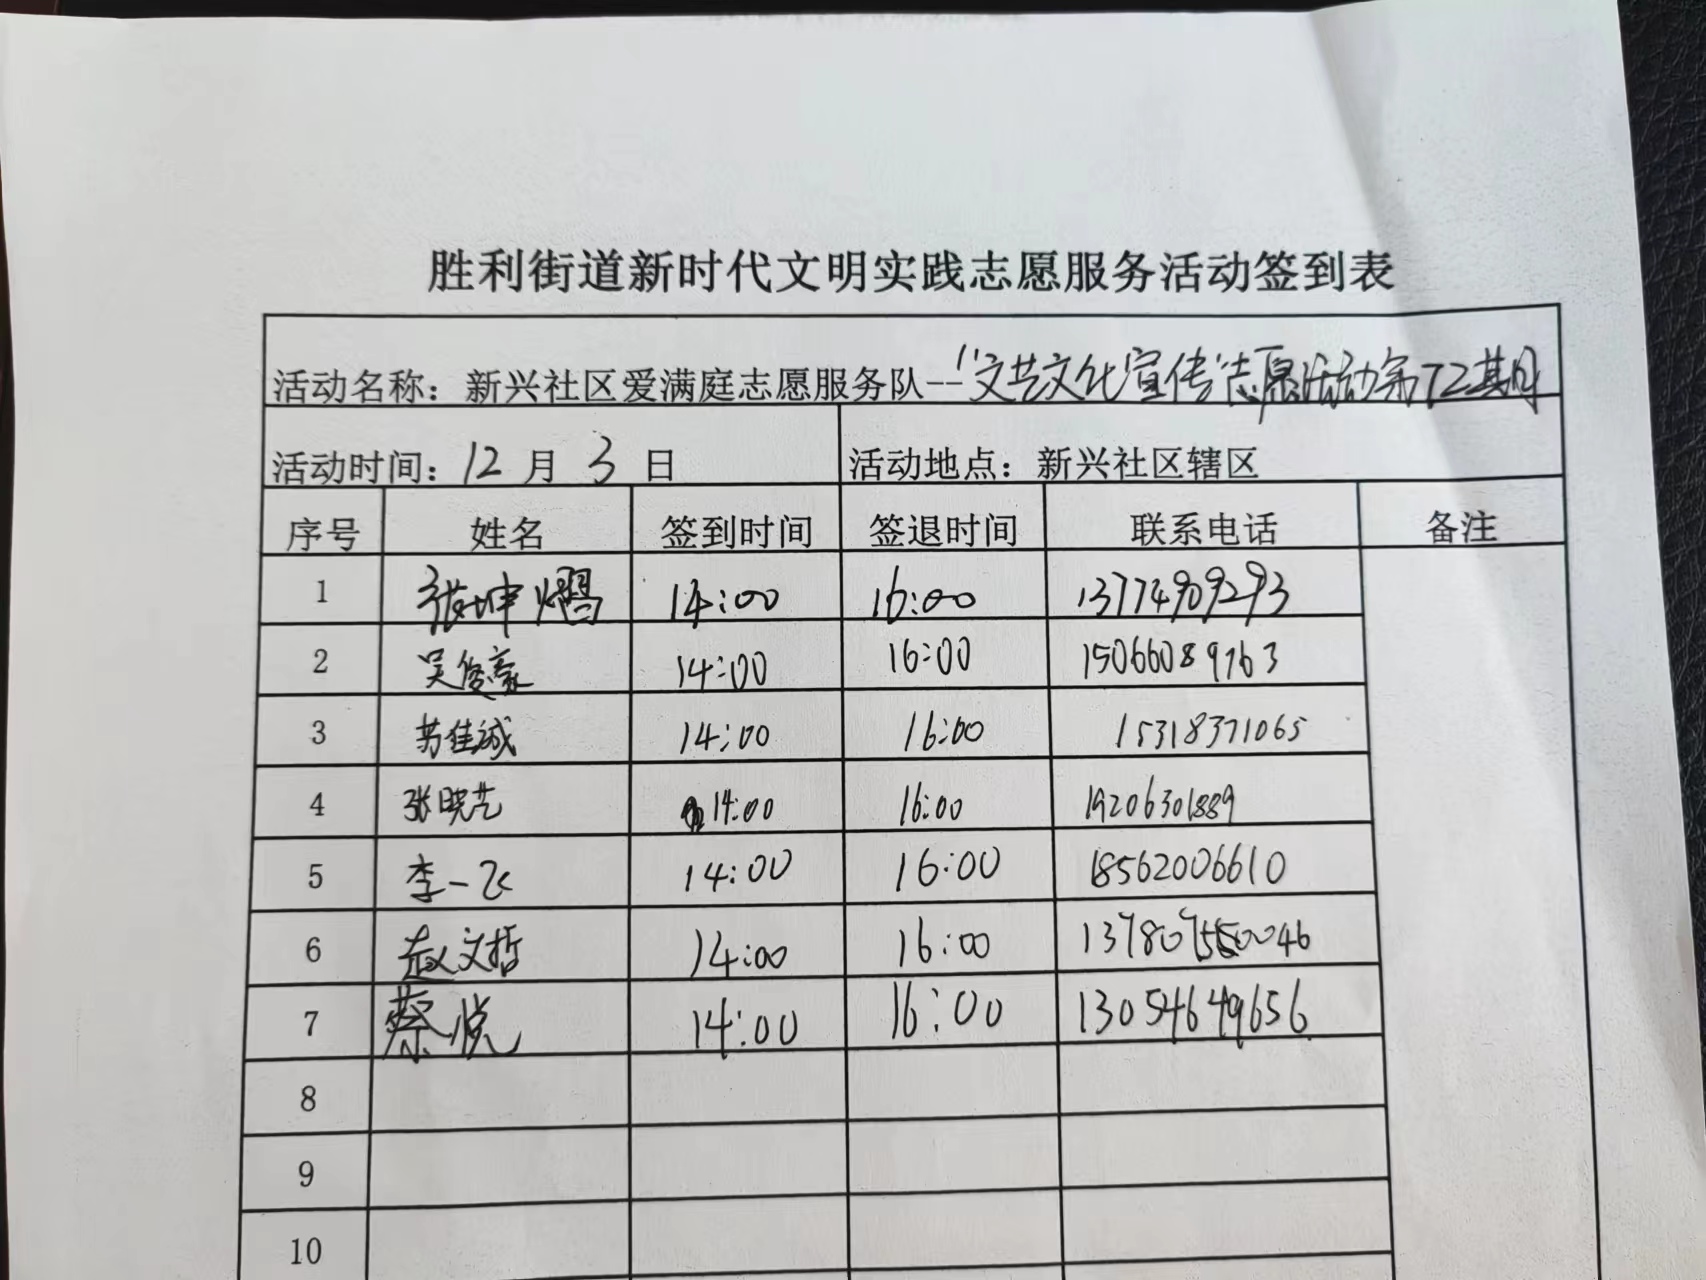 胜利街道新时代文明实践志愿服务活动签到表
活动名称：新兴社区爱满庭志愿服务队--"文艺文化宣传"志愿活动第72期
活动时间：12月3日 活动地点：新兴社区辖区
序号 姓名 签到时间 签退时间 联系电话 备注
1 张坤熠 14:00 16:00 13774909293
2 吴俊豪 14:00 16:00 15066089763
3 苏佳诚 14:00 16:00 15318371065
4 张晓艺 14:00 16:00 19206301889
5 李一飞 14:00 16:00 18562006610
6 赵文哲 14:00 16:00
7 蔡悦 14:00 16:00 13054649656
8
9
10